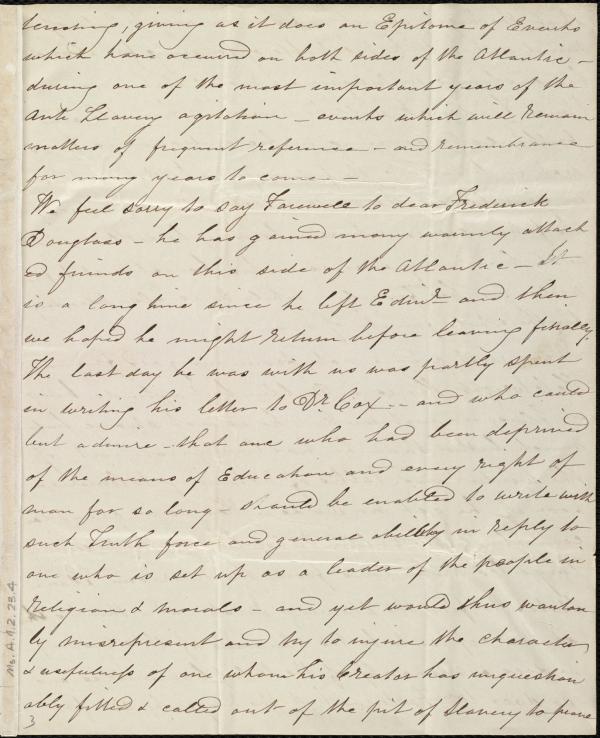 teresting, giving as it does an Epitome of Events
which have occurred on both sides of the Atlantic –
during one of the most important years of the
Anti Slavery agitation – events which will remain
matters of frequent reference – and remembrance
for many years to come –
We feel sorry to say Farewell to dear Frederick
Douglass – he has gained many warmly attach
ed friends on this side of the Atlantic – It
is a long time since he left Edinr – and then
we hoped he might return before leaving finally,
The last day he was with us was partly spent
in writing his letter to Dr. Cox – and who could
but admire – that one who had been deprived
of the means of Education and every right of
man for so long – should be enabled to write with
such Truth force and general ability in reply to
one who is set up as a leader of the people in
religion & morals – and yet would thus wanton
ly misrepresent and try to injure the character
& usefulness of one whom his Creator has unquestion
ably fitted & called out of the pit of Slavery to prove
3
Ms. A. 1. 2. 23. 4